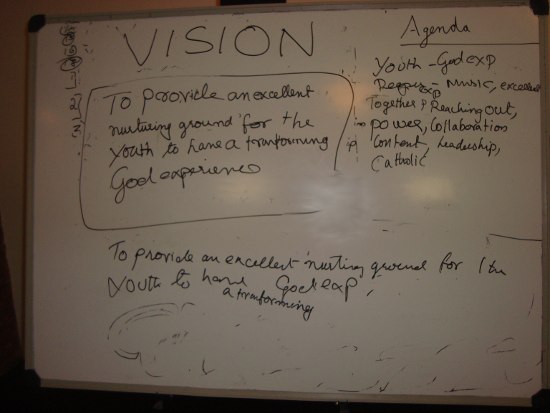 VISION
To provide an excellent
nurturing ground for the
youth to have a transforming
God experience
Agenda
Youth - God exp
exp - Music, excellent
Together & Reaching Out,
power, Collaboration
Content, Leadership,
Catholic
To provide an excellent nurting ground for the
youth to have God exp.
a transforming